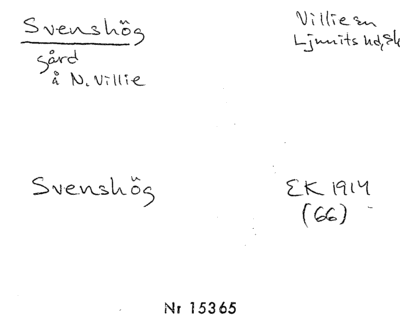 Svenshög
gård
å N. Villie
Villie sn
Ljunits hd, Sk
Svenshög
EK 1914
(66)
Nr 15365